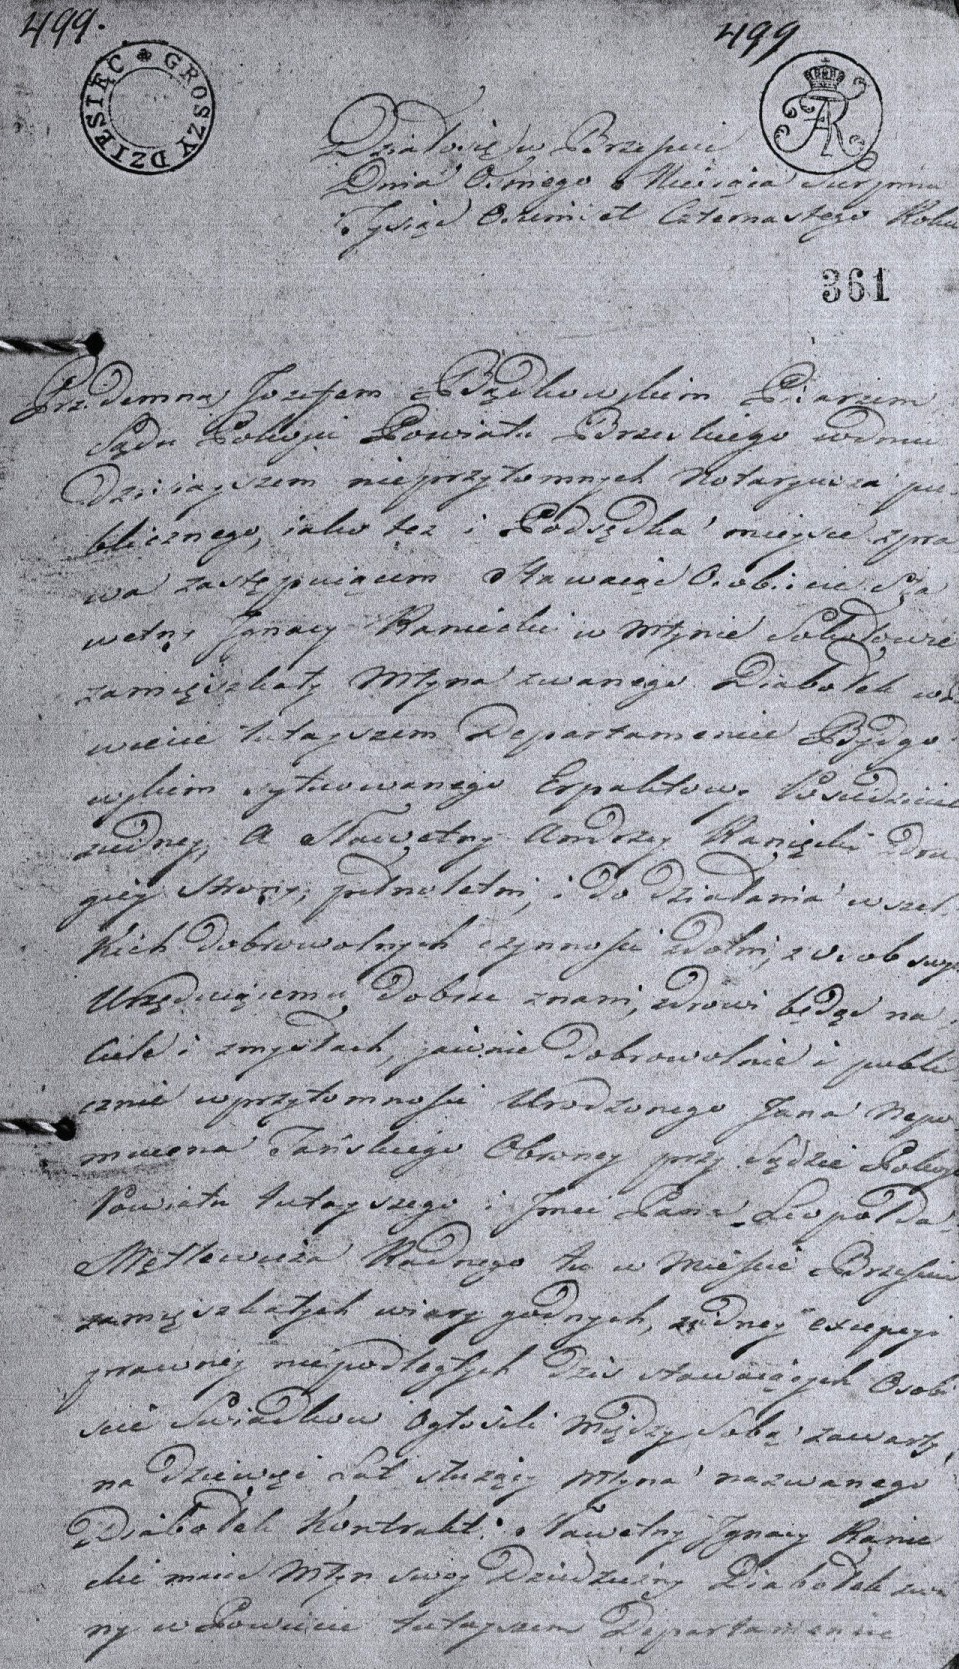 499.
499
DZIESIĘC GROSZY
Działo się w Brześciu
Dnia Osmego Miesiąca Sierpnia
Tysiąc Ośmset Czternastego Roku
361
Przedemną Jozefem Bądkowskim Pisarzem
Sądu Pokoju Powiatu Brzeskiego w dniu
Dzisiayszem nieprzytomnych Notaryusza pu
blicznego, iako też i Podsędka mieysce z pra
wa zastępuiącem Stawaiąc Osobiście Sła
wetny Jgnacy Kaniecki w Młynie
zamięszkały Młyna zwanego Diabołek w
wiecie tutayszem Departamencie Bydgo
skiem sytuowanego
iedney, A Sławetny Andrzey Kaniecki Dru
giey strony, pełnoletni, i do działania wszel
kich dobrowolnych czynnosci zdolni, z osob swych
Urzęduiącemu dobrze znani, zdrowi będąc na
ciele i zmysłach, jawnie dobrowolnie i publi
cznie w przytomnosci Urodzonego Jana Nepo
mucena Tańskiego Obroncy przy Sądzie Pokoju
Powiatu tutayszego i Jmci Pana Leopolda
Mętlewicza Radnego tu w Miescie Brzesciu
zamięszkałych wiary godnych, żadney excepcyi
prawney niepodległych Dzis stawaiących Osobi
scie Swiadkow Ogłosili Między Sobą zawarty
na dziewięć Lat służący Młyna nazwanego
Diabołek Kontrakt. Sławetny Jgnacy Kanie
cki maiąc Młyn swoy Dziedziczny Diabołek zwa
ny w Powiecie tutayszem Departamencie